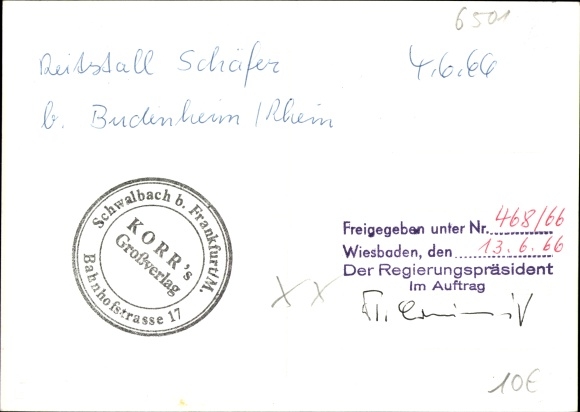 6501
Reitstall Schäfer 4.6.66
b. Budenheim/Rhein
Schwalbach b. Frankfurt/M.
KORR's
Großverlag
Bahnhofstrasse 17
Freigegeben unter Nr. 468/66
Wiesbaden, den 13.6.66
Der Regierungspräsident
Im Auftrag
XX
10€